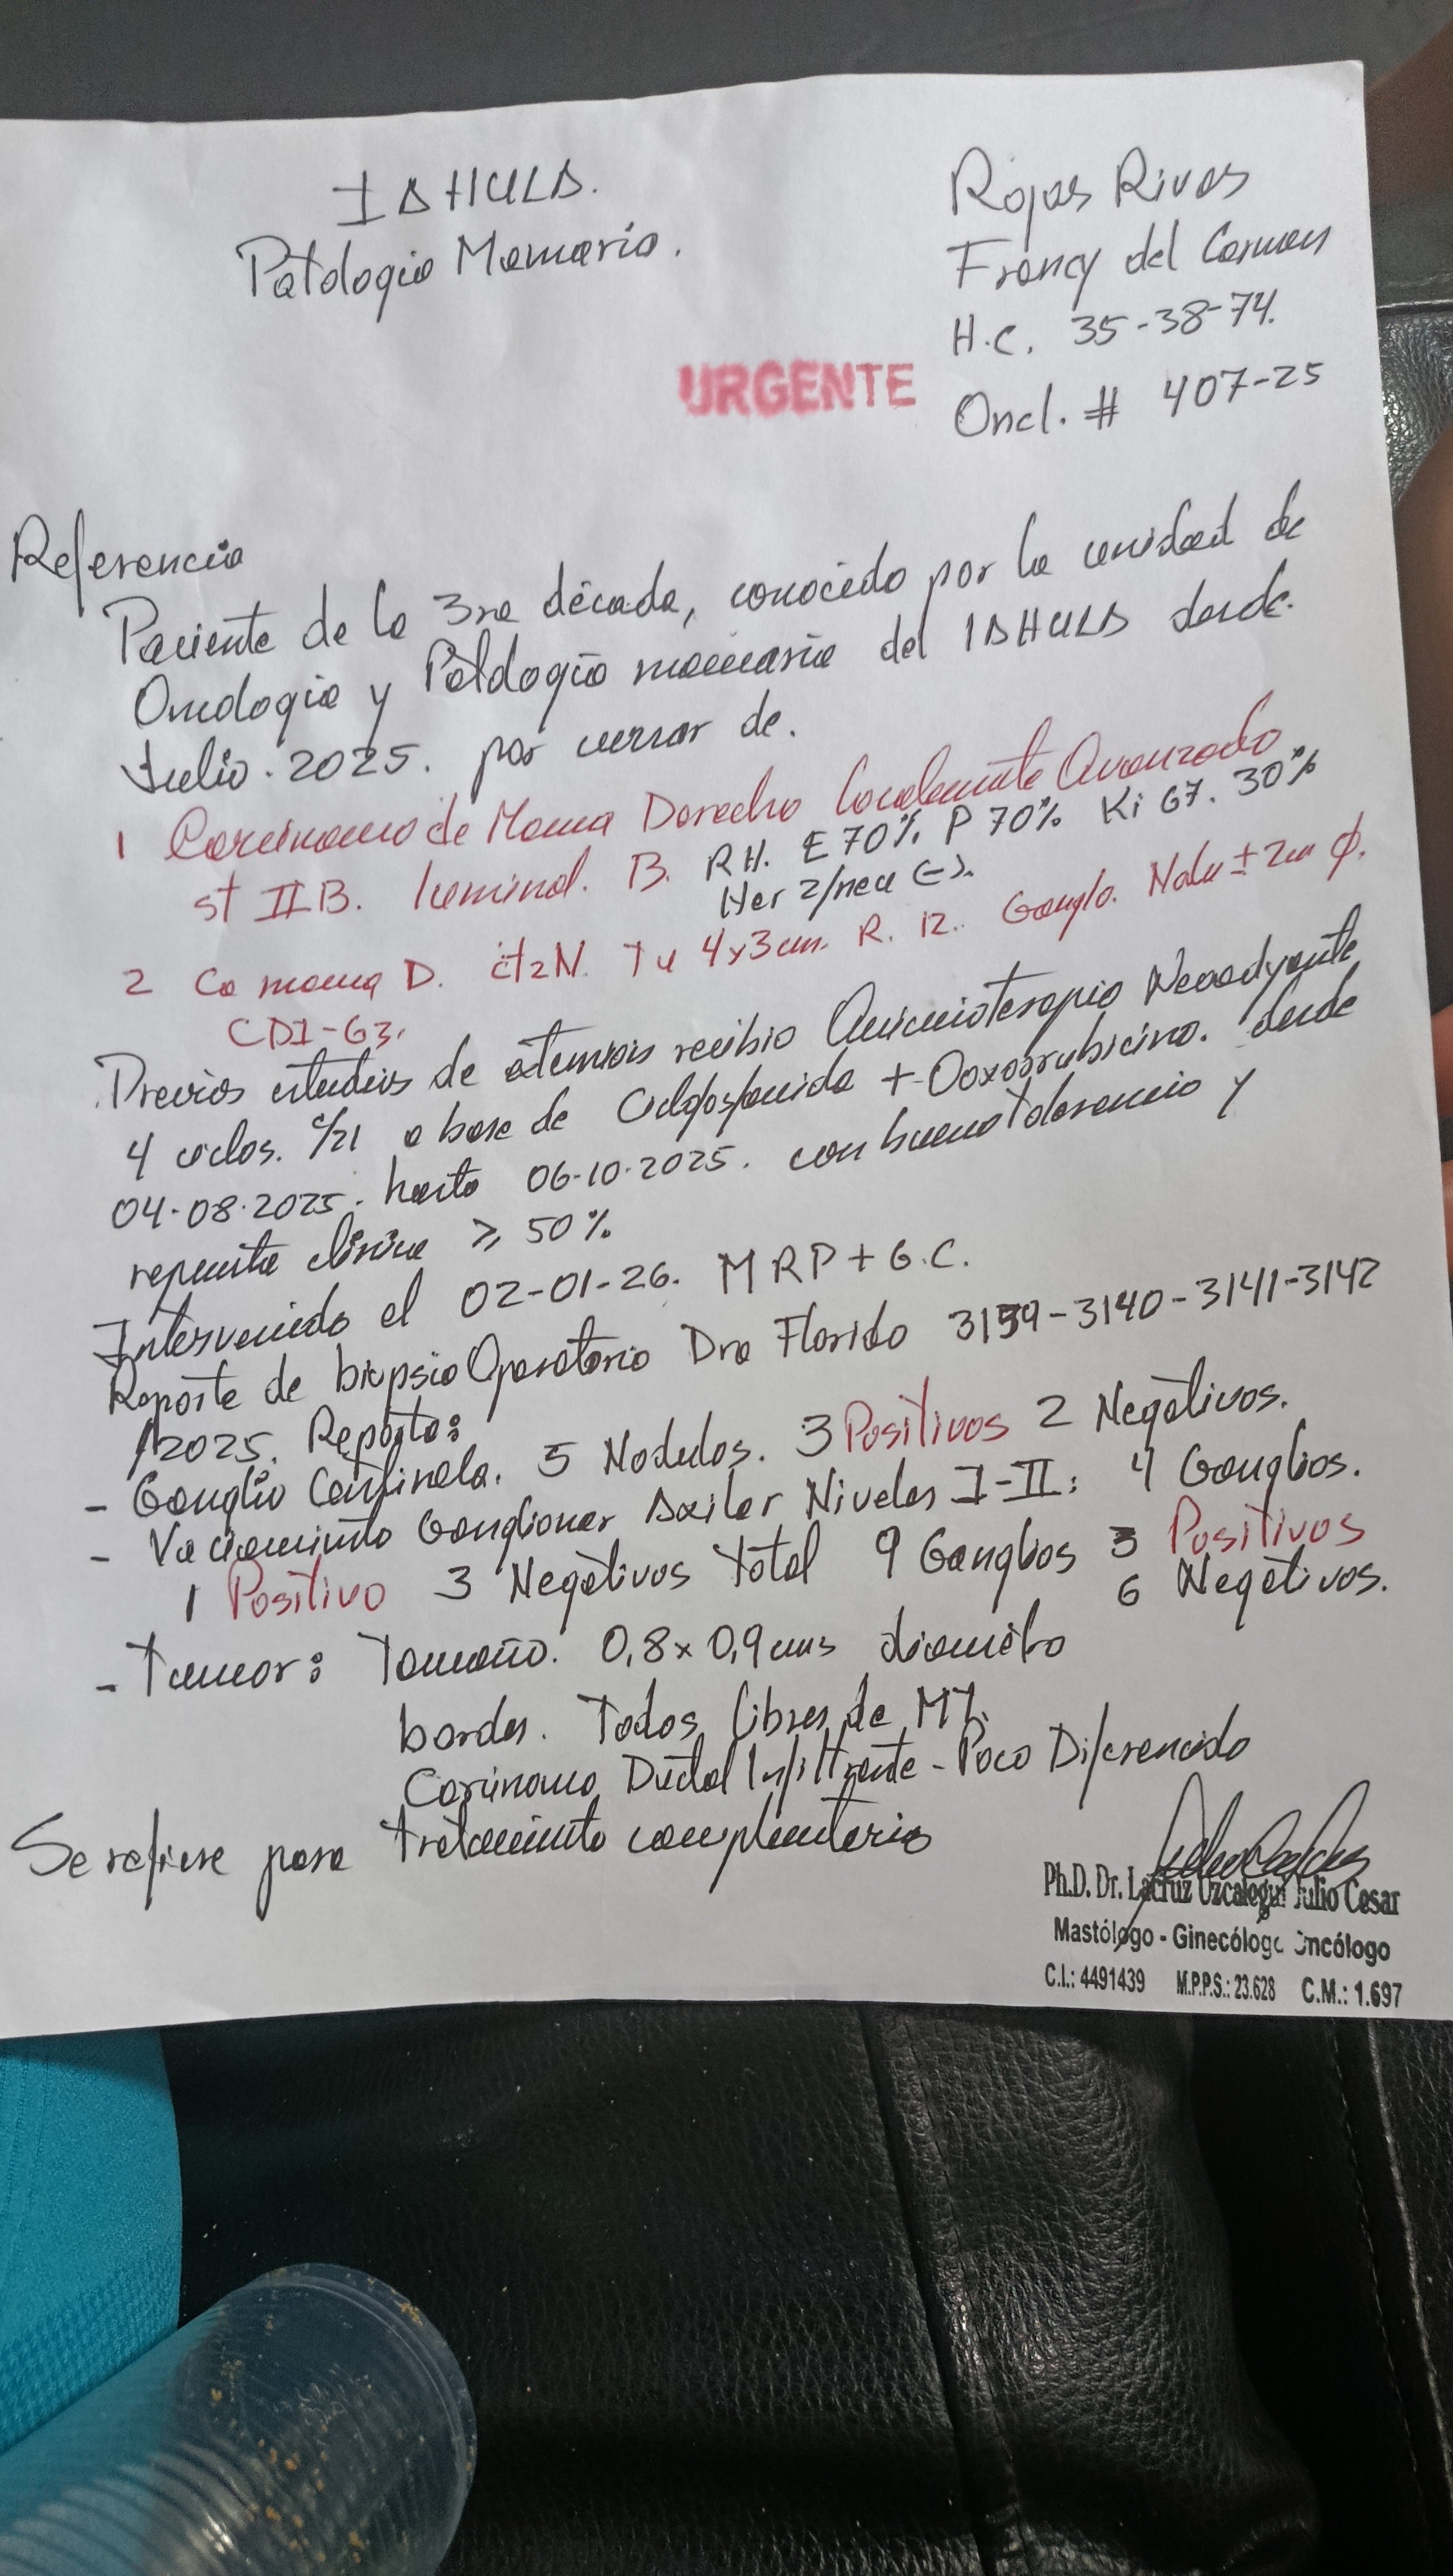 IAHULA.
Patologia Mamaria.
Rojas Rivas
Francy del Carmen
H.C. 35-38-74.
URGENTE
Oncl. # 407-25
Referencia
Paciente de la 3ra década, conocido por la unidad de
Oncologia y Patologia mamaria del IAHULA desde.
Julio. 2025. por cursar de.
1 Carcinoma de Mama Derecho Localmente Avanzado
st IIB. luminal. B. RH. E 70% P 70% Ki 67. 30%
Her 2/neu (-).
2 Ca mama D. T2N. Tu 4x3 cm. R. 12. Ganglo. ± 2cm φ.
CDI-G3.
Previos estudios de recibio Quimioterapia Neoadyante
4 ciclos. c/21 a base de + Doxorrubicina. desde
04-08-2025. hasta 06-10-2025. con buena tolerancia y
repuesta clinica ≥ 50%
Intervenido el 02-01-26. MRP + G.C.
Reporte de biopsia Operatoria Dra Florido 3139-3140-3141-3142
/2025. Reporto:
- Ganglio Centinela. 5 Nodulos. 3 Positivos 2 Negativos.
- Vaciamiento Ganglionar Axilar Niveles I-II: 4 Ganglios.
1 Positivo 3 Negativos total 9 Ganglios 3 Positivos
6 Negativos.
- Tumor: Tamaño. 0,8 x 0,9 cms diametro
bordes. Todos libres de MT.
Carcinoma Ductal Infiltrante - Poco Diferenciado
Se refiere para tratamiento complementario
Ph.D. Dr. Lacruz Uzcategui Julio Cesar
Mastólogo - Ginecólogo Oncólogo
C.I.: 4491439 M.P.P.S.: 23.628 C.M.: 1.697